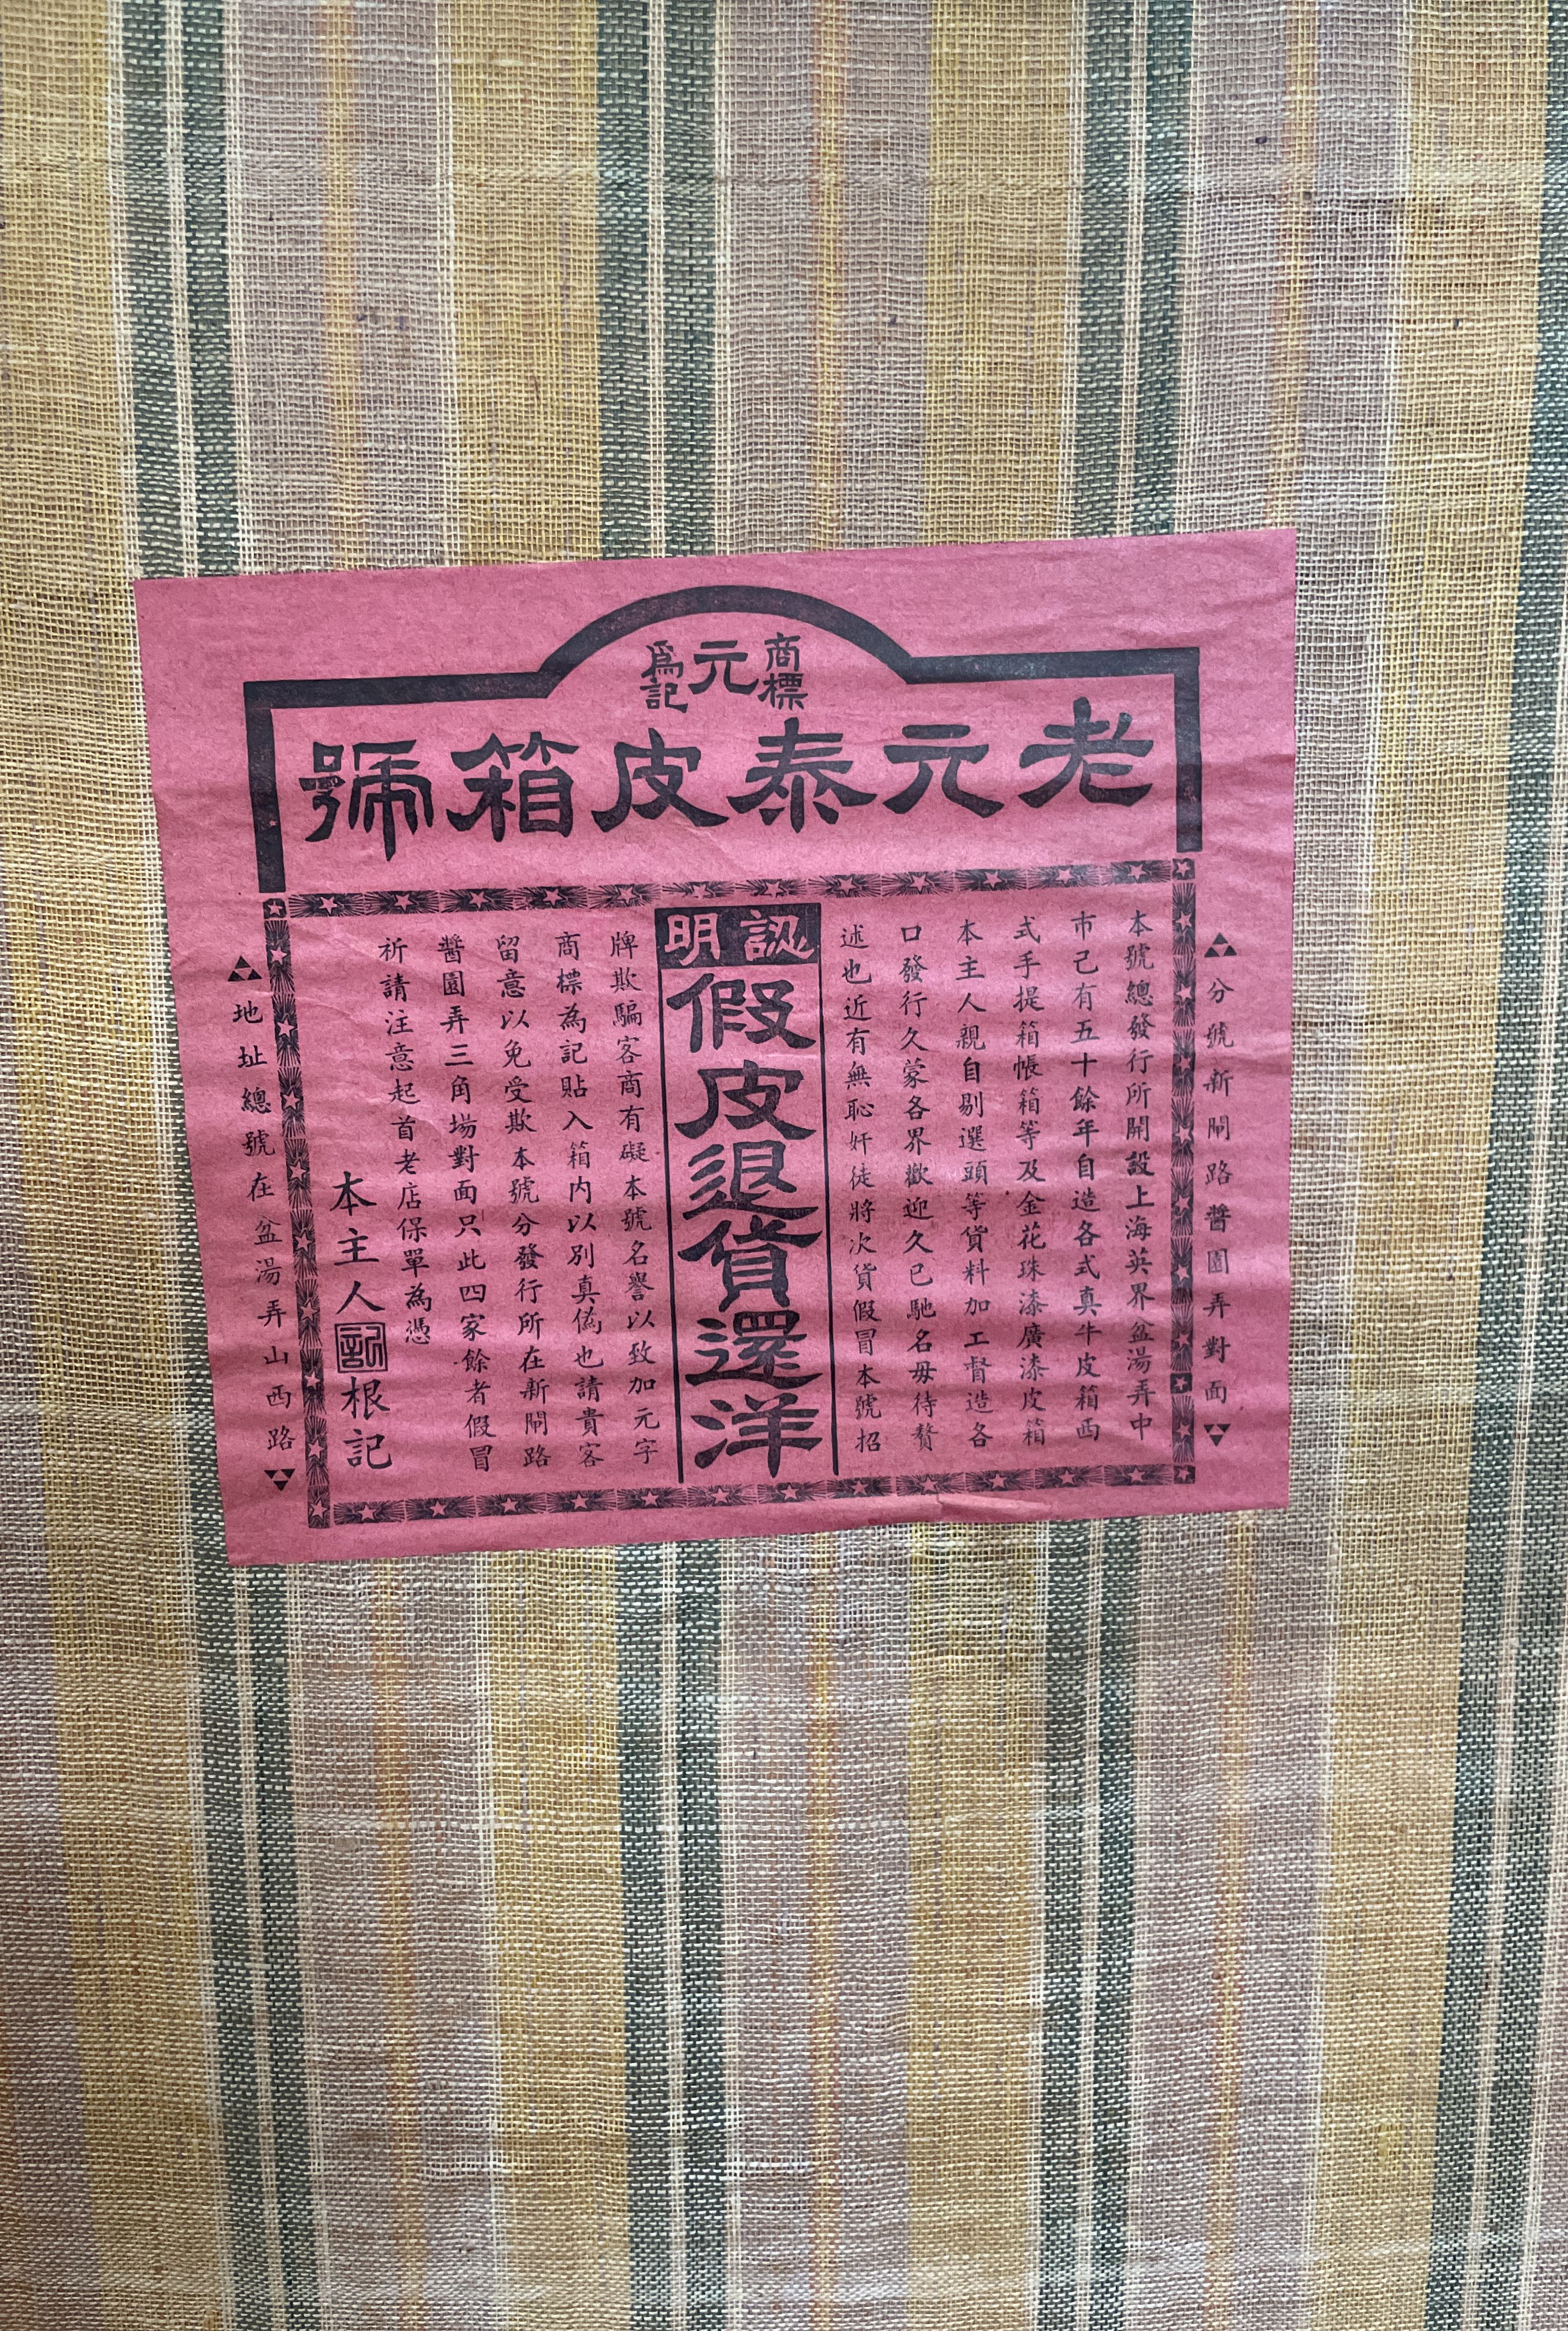 商標元為記
老元泰皮箱號
分號新閘路醬園弄對面
本號總發行所開設上海英界盆湯弄中
市己有五十餘年自造各式真牛皮箱西
式手提箱帳箱等及金花珠漆廣漆皮箱
本主人親自剔選頭等貨料加工督造各
口發行久蒙各界歡迎久已馳名毋待贅
述也近有無恥奸徒將次貨假冒本號招
認明
假皮退貨還洋
牌欺騙客商有礙本號名譽以致加元字
商標為記貼入箱內以別真偽也請貴客
留意以免受欺本號分發行所在新閘路
醬園弄三角場對面只此四家餘者假冒
祈請注意起首老店保單為憑
本主人記根記
地址總號在盆湯弄山西路